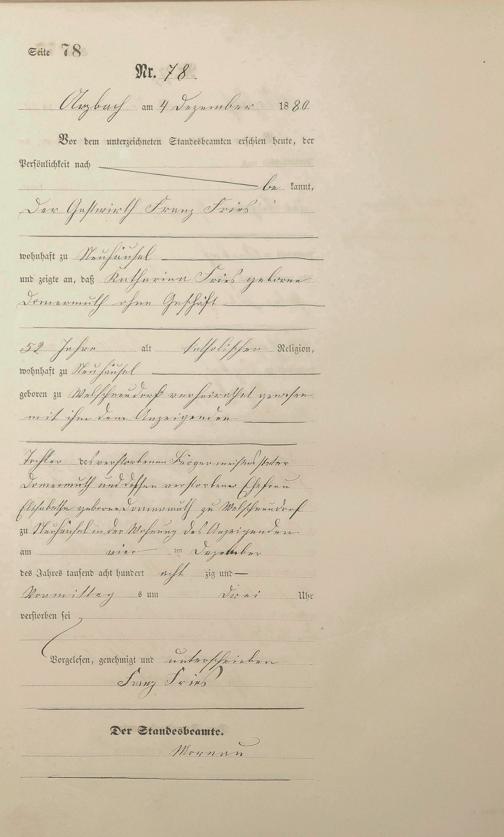 Seite 78
Nr. 78
Arzbach am 4 Dezember 1880.
Vor dem unterzeichneten Standesbeamten erschien heute, der
Persönlichkeit nach
be kannt,
der Gastwirth Franz Fries
wohnhaft zu Neuhäusel
und zeigte an, daß Katharina Fries geborne
ohne Geschäft
52 Jahre alt katholischen Religion,
wohnhaft zu Neuhäusel
geboren zu Welschneudorf verheirathet gewesen
mit ihm dem Anzeigenden
Tochter des verstorbenen Bürgermeisters Peter
und dessen verstorbene Ehefrau
Elisabetha geborene zu Welschneudorf
zu Neuhäusel in der Wohnung des Anzeigenden
am vier ten Dezember
des Jahres tausend acht hundert acht zig und
Vormittag s um drei Uhr
verstorben sei
Vorgelesen, genehmigt und unterschrieben
Franz Fries
Der Standesbeamte.